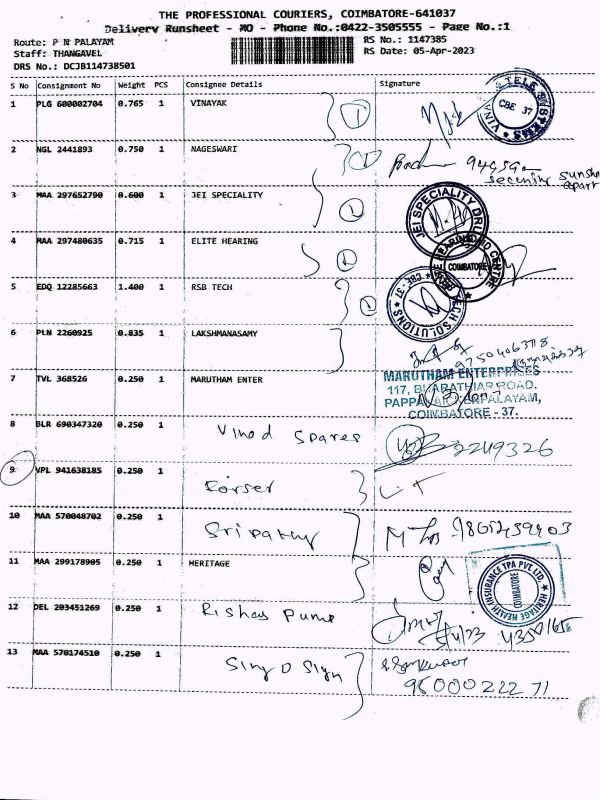 THE PROFESSIONAL COURIERS, COIMBATORE-641037
Delivery Runsheet - MO - Phone No.:0422-3505555 - Page No.:1
Route: P N PALAYAM
RS No.: 1147385
Staff: THANGAVEL
RS Date: 05-Apr-2023
DRS No.: DCJB114738501
S No Consignment No Weight PCS Consignee Details Signature
1 PLG 600002704 0.765 1 VINAYAK
CBE 37
2 NGL 2441893 0.750 1 NAGESWARI
security sunsh
apart
3 MAA 297652790 0.600 1 JEI SPECIALITY
JEI SPECIALITY DRU
4 MAA 297480635 0.715 1 ELITE HEARING
COIMBATORE
5 EDQ 12285663 1.400 1 RSB TECH
TECH SOLUTIONS * CBE - 37
6 PLN 2260925 0.835 1 LAKSHMANASAMY
7 TVL 368526 0.250 1 MARUTHAM ENTER
MARUTHAM ENTERPRISES
117, BHARATHIAR ROAD,
PAPPANAICKENPALAYAM,
COIMBATORE - 37.
8 BLR 690347320 0.250 1 Vinod Spares
2249326
9 VPL 941638185 0.250 1
10 MAA 570048702 0.250 1 Sripathy
11 MAA 299178905 0.250 1 HERITAGE
HERITAGE HEALTH INSURANCE TPA PVT. LTD.
COIMBATORE
12 DEL 203451269 0.250 1 Pump
13 MAA 570174510 0.250 1 Sing D Sign
95000222 71